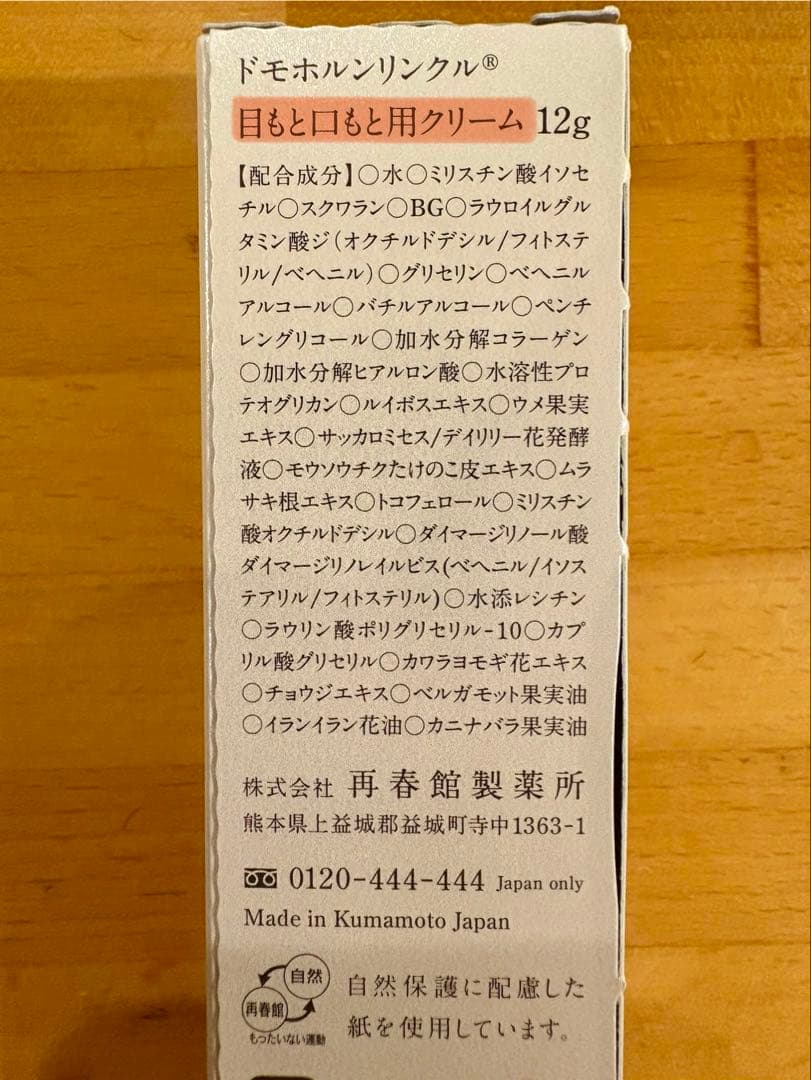 ドモホルンリンクル®
目もと口もと用クリーム 12g
【配合成分】○水○ミリスチン酸イソセ
チル○スクワラン○BG○ラウロイルグル
タミン酸ジ(オクチルドデシル/フィトステ
リル/ベヘニル)○グリセリン○ベヘニル
アルコール○バチルアルコール○ペンチ
レングリコール○加水分解コラーゲン
○加水分解ヒアルロン酸○水溶性プロ
テオグリカン○ルイボスエキス○ウメ果実
エキス○サッカロミセス/デイリリー花発酵
液○モウソウチクたけのこ皮エキス○ムラ
サキ根エキス○トコフェロール○ミリスチン
酸オクチルドデシル○ダイマージリノール酸
ダイマージリノレイルビス(ベヘニル/イソス
テアリル/フィトステリル)○水添レシチン
○ラウリン酸ポリグリセリル-10○カプ
リル酸グリセリル○カワラヨモギ花エキス
○チョウジエキス○ベルガモット果実油
○イランイラン花油○カニナバラ果実油
株式会社 再春館製薬所
熊本県上益城郡益城町寺中1363-1
0120-444-444 Japan only
Made in Kumamoto Japan
自然
再春館
もったいない運動
自然保護に配慮した
紙を使用しています。